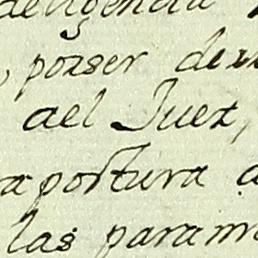 deligencia
, por ser de
del Juez,
apostura a
las param